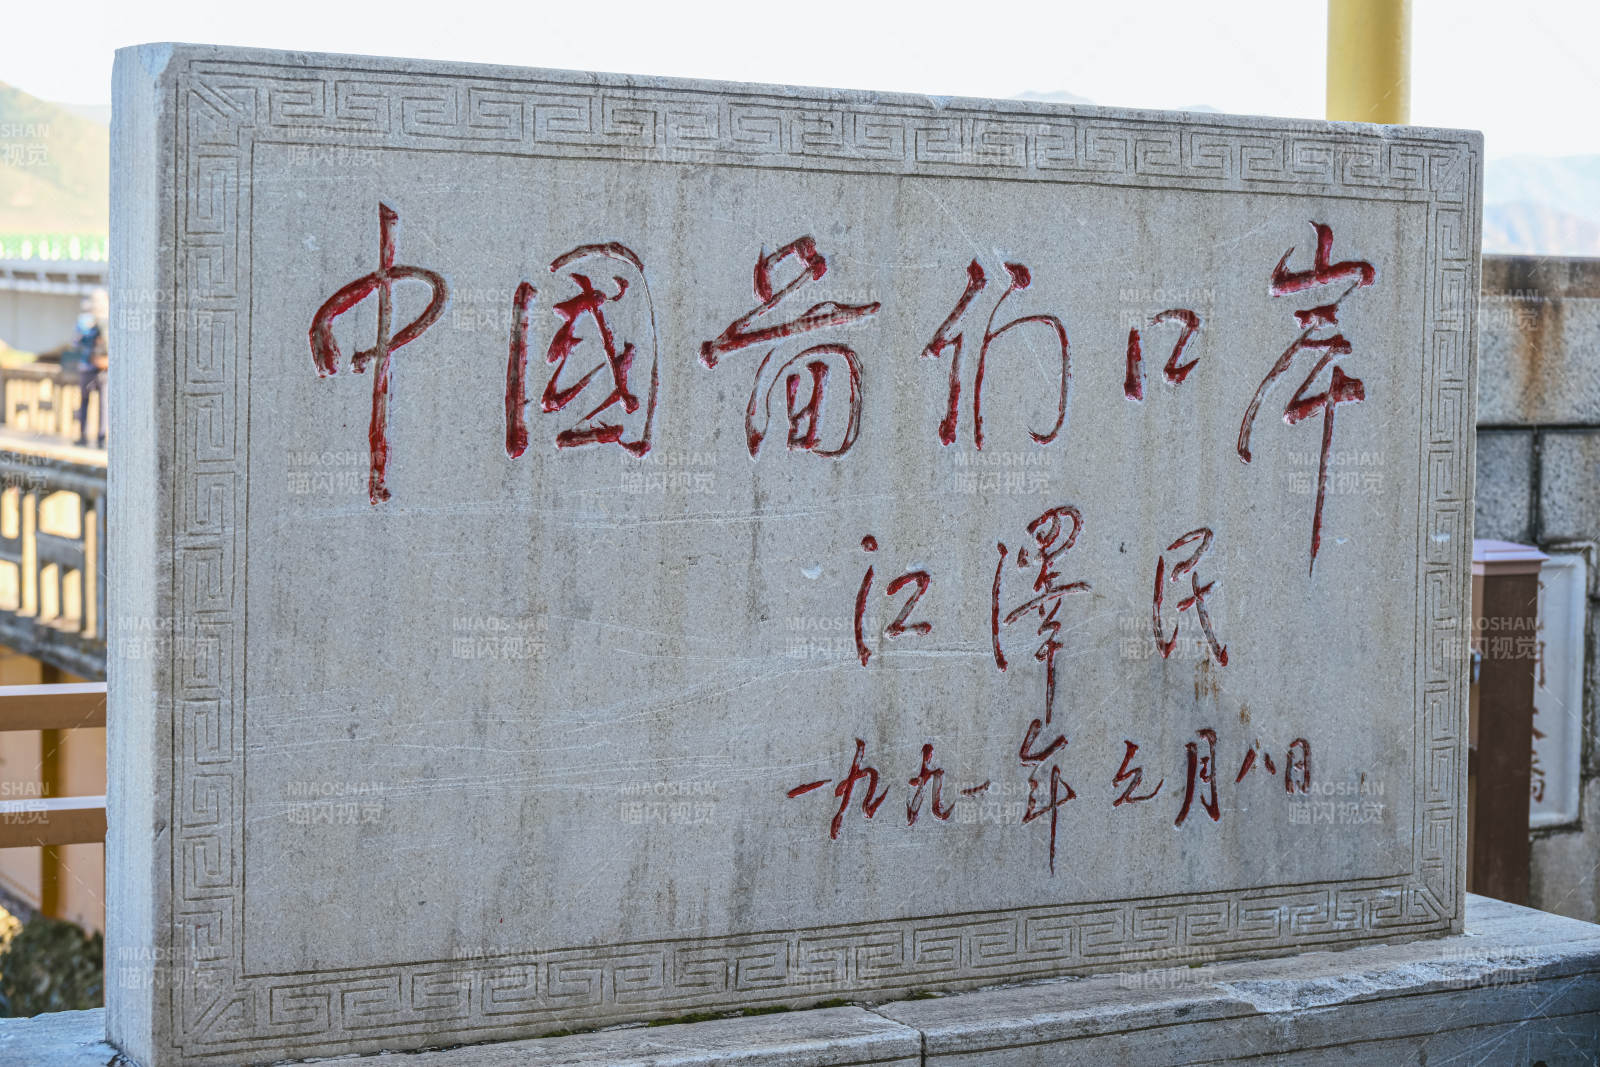 中國啚们口岸
江澤民
一九九一年元月八日
MIAOSHAN
喵闪视觉